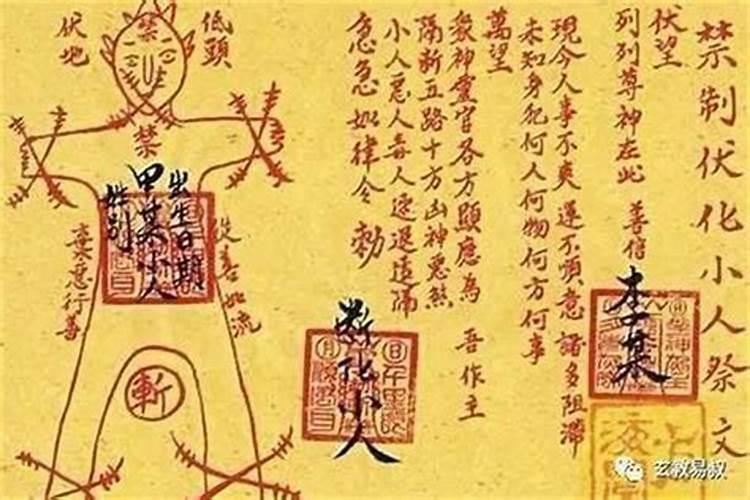 禁制伏化小人祭文
伏望
列列尊神在此 善信
李某
現今人事不爽 運不順意 諸多阻滯
未知身犯何人何物何方何事
萬望
眾神靈官各方顯應為 吾作主
隔斷五路十方凶神惡煞
小人惡人毒人速退遠隔
急急如律令 勅
斷化小人
低頭
伏地
禁
禁
出生日期
甲某小人
姓别
從善如流
棄惡行善
斬
玄教易叔